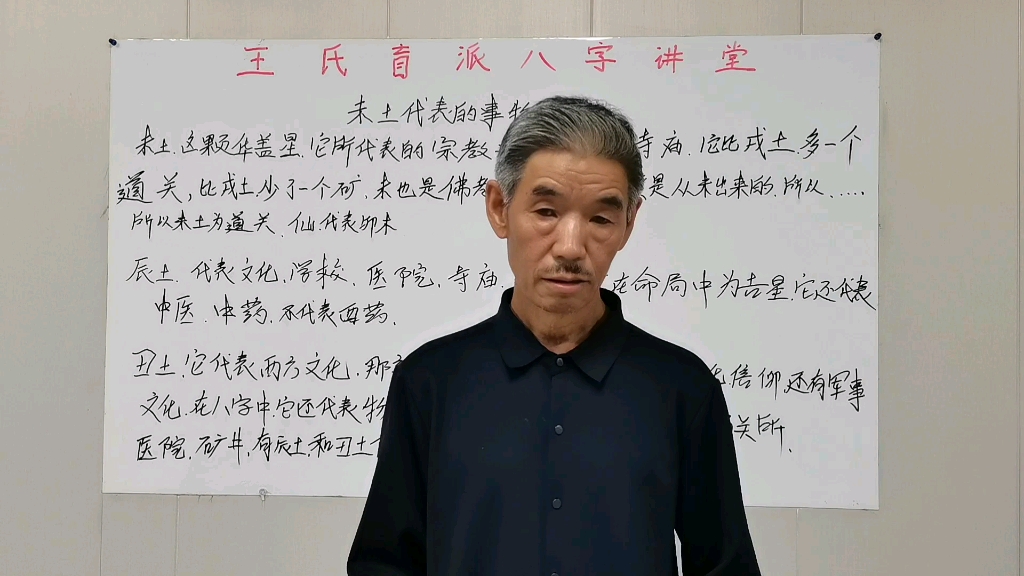 王氏盲派八字讲堂
未土代表的事物
未土.这颗华盖星.它所代表的宗教 寺庙.它比戌土.多一个
道关,比戌土.少了一个矿,未也是佛 是从未出来的.所以.....
所以未土为道关.仙.代表卯未
辰土.代表文化.学校.医院.寺庙. 在命局中为吉星.它还代表
中医.中药.不代表西药.
丑土.它代表西方文化.那 信仰,还有军事
文化.在八字中.它还代表
医院.矿井,有辰土.和丑土 关所.